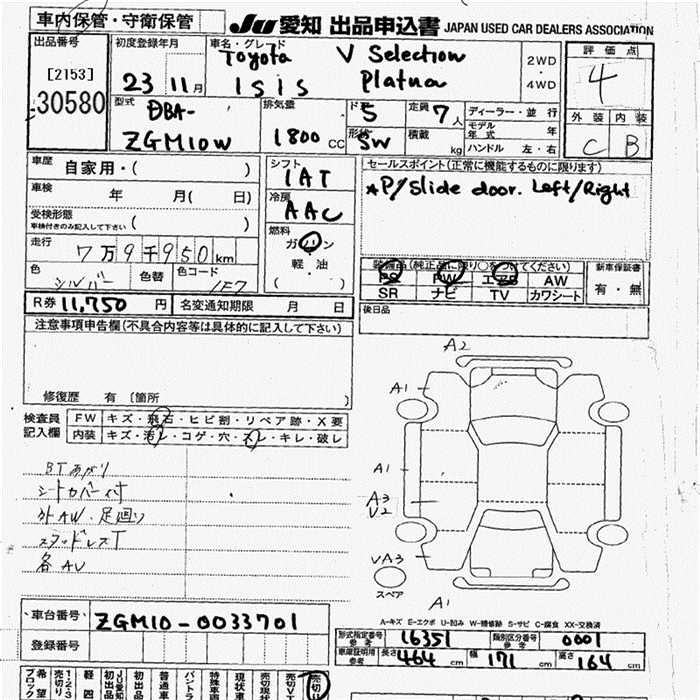 車内保管・守衛保管
JU 愛知 出品申込書 JAPAN USED CAR DEALERS ASSOCIATION
出品番号
[2153]
30580
初度登録年月
23 11月
車名・グレード
Toyota V Selection
ISIS Platna
2WD・4WD
評価点
4
外装 内装
C B
型式
DBA-
ZGM10W
排気量
1800 CC
ド 5
形状 SW
定員 7人
積載 kg
ディーラー・並行
モデル年式 年
ハンドル 左・右
車歴 自家用・( )
車検 年 月( 日)
受検形態
車検付きのみ記入して下さい ( )
走行 7万9千950km
色 シルバー 色替 色コード 1F7
シフト
IAT
冷房
AAC
燃料
ガソリン
軽油
( )
セールスポイント(正常に機能するものに限ります)
*P/Slide door. Left/Right
装備品(純正品に限り○をつけてください)
PS PW エアB AW
SR ナビ TV カワシート
新車保証書
有・無
R券 11,750 円 名変通知期限 月 日
後日品
注意事項申告欄(不具合内容等は具体的に記入して下さい)
修復歴 有 〔箇所 〕
検査員記入欄
FW キズ・飛石・ヒビ割・リペア跡・X要
内装 キズ・汚レ・コゲ・穴・スレ・キレ・破レ
BTあがり
シートカバー付
外AW・足廻り
スタッドレスT
各AU
A2
A1
A1
A3
V2
VA3
スペア
A1
A-キズ E-エクボ U-凹み W-補修跡 S-サビ C-腐食 XX-交換済
車台番号 ZGM10-0033701
登録番号
形式指定番号 参考 16351 類別区分番号 参考 0001
車庫証明用 参考 長さ 464 cm 幅 171 cm 高さ 164 cm
希望ブロック
売切り
軽四
初出品
普通車
バントラ
特殊車両
現状車
売切現状
売切VT
売切